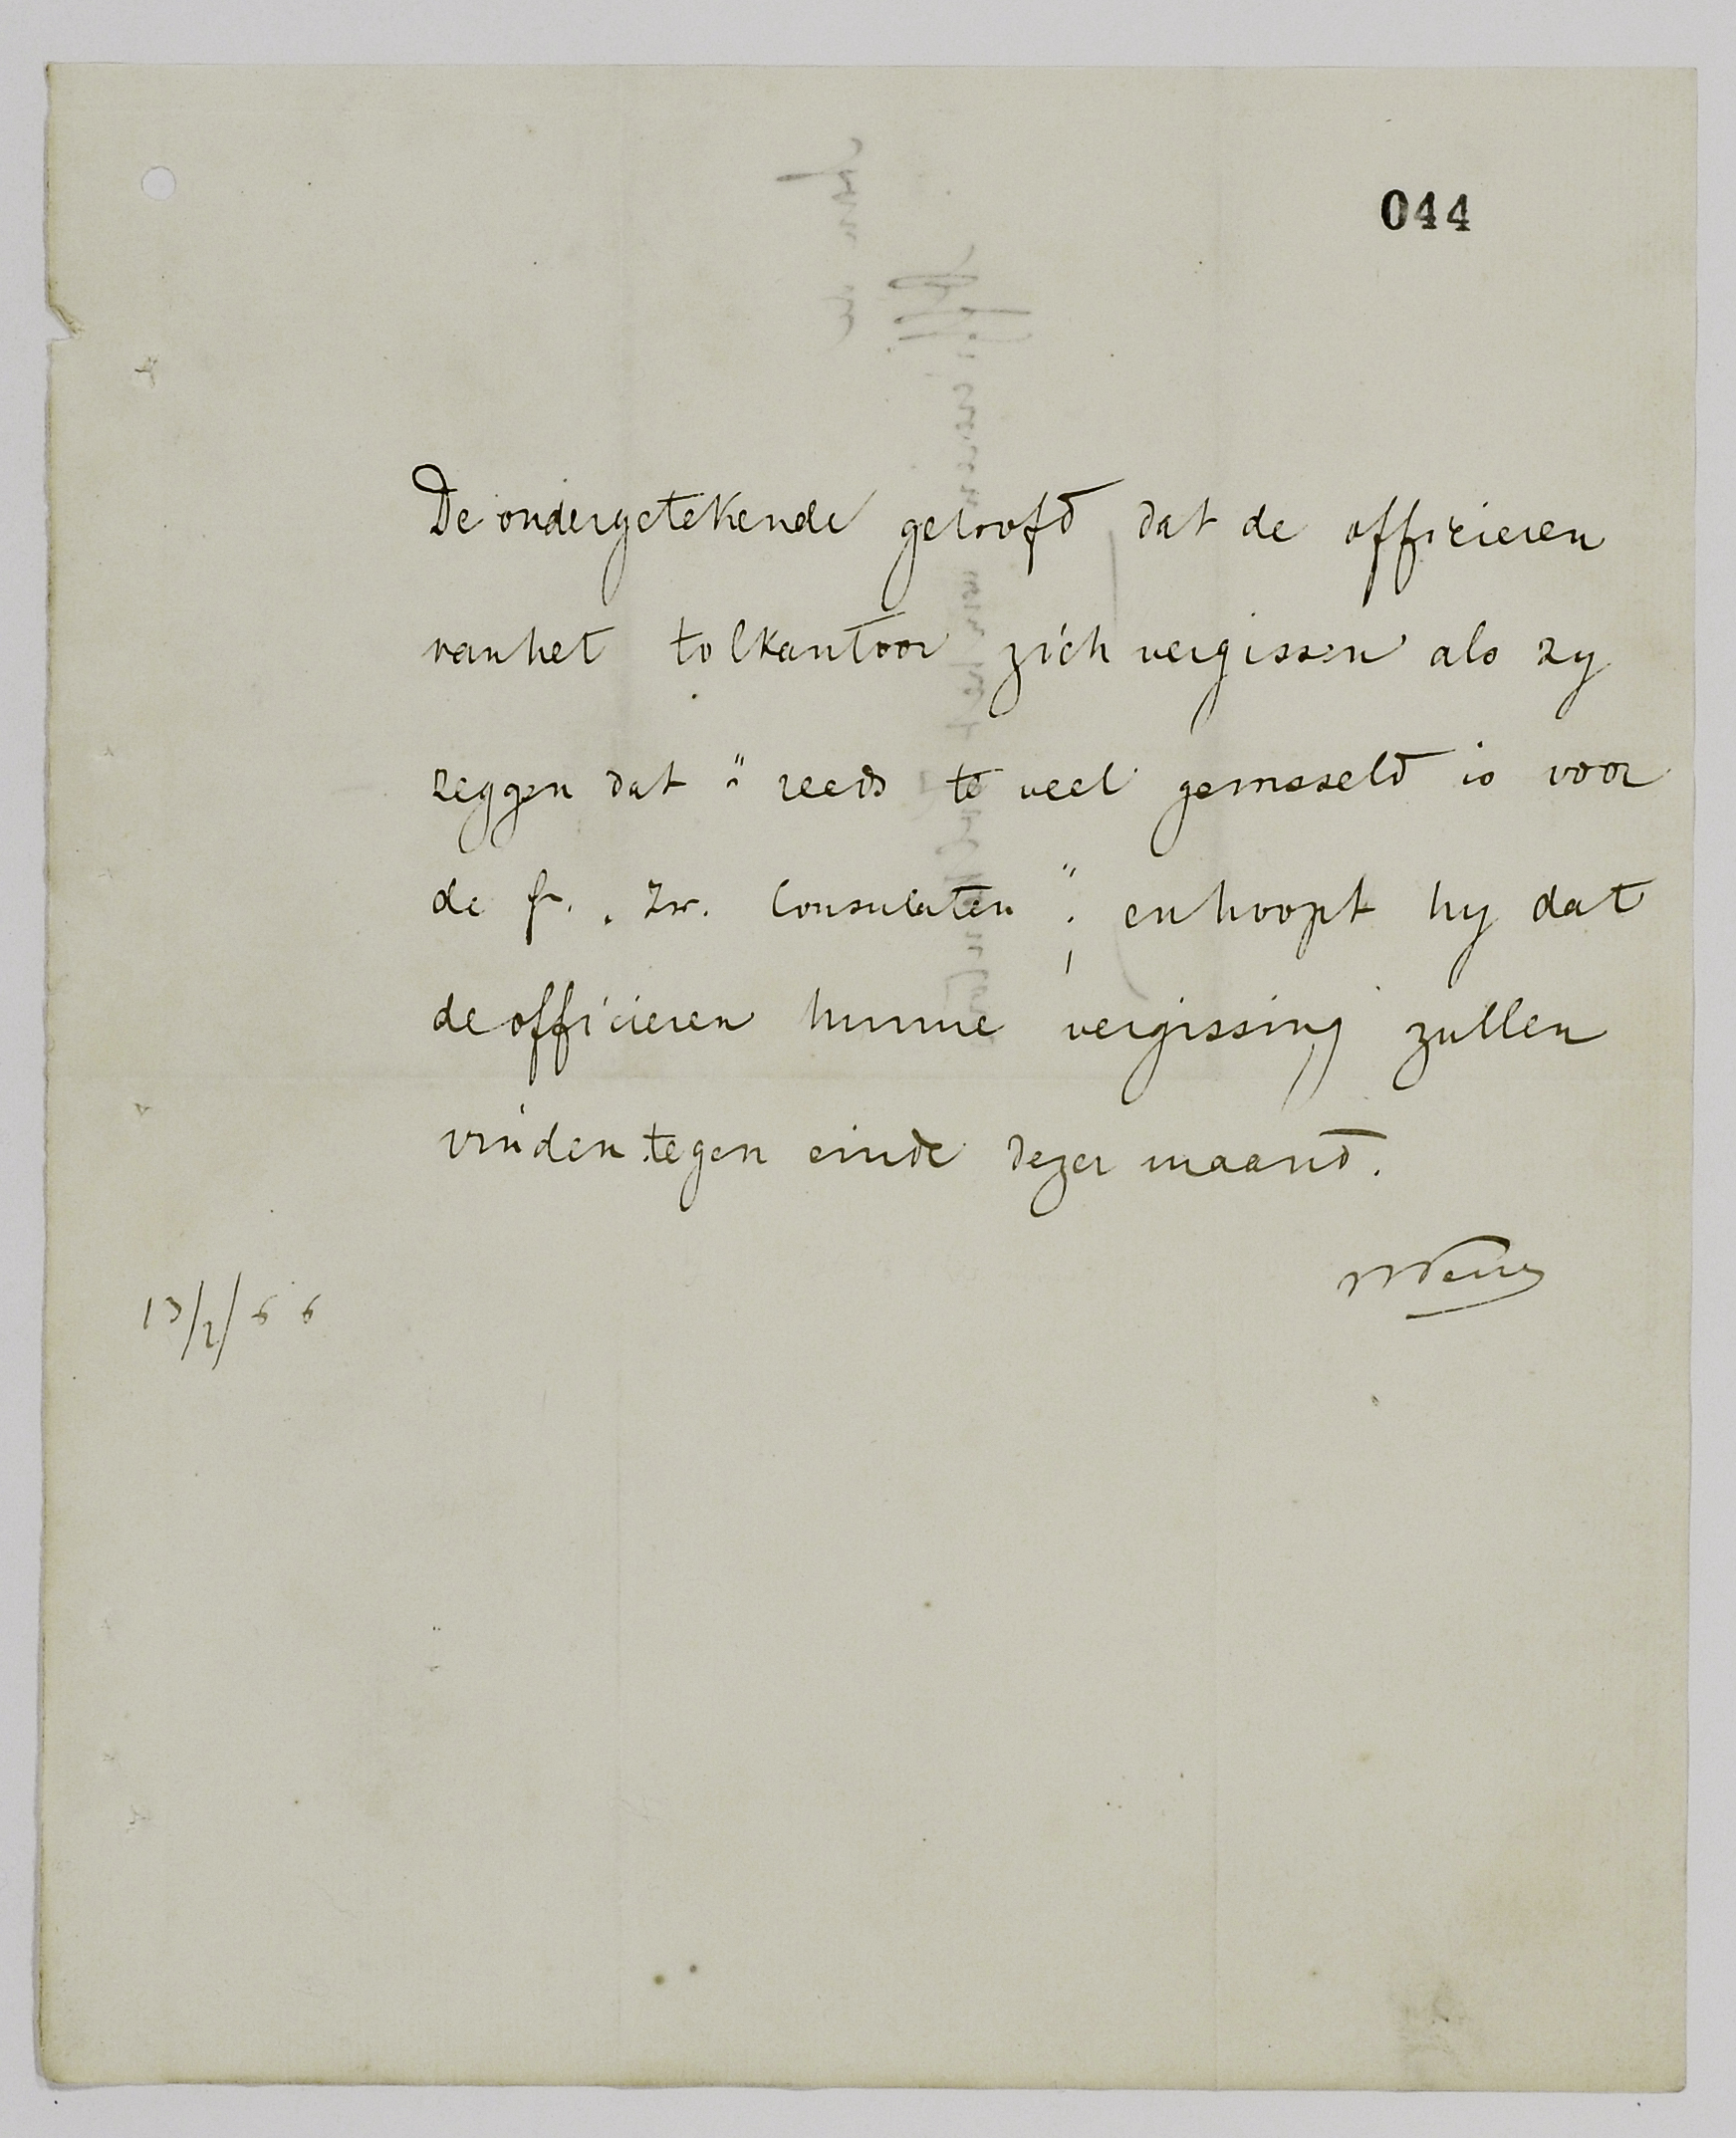 044
De ondergetekende gelooft dat de officieren
van het tolkantoor zich vergissen als zy
zeggen dat " reeds te veel gewisseld is voor
de fr. . Zw. Consulaten ", en hoopt hy dat
de officieren hunne vergissing zullen
vinden tegen einde dezer maand.
13/2/66